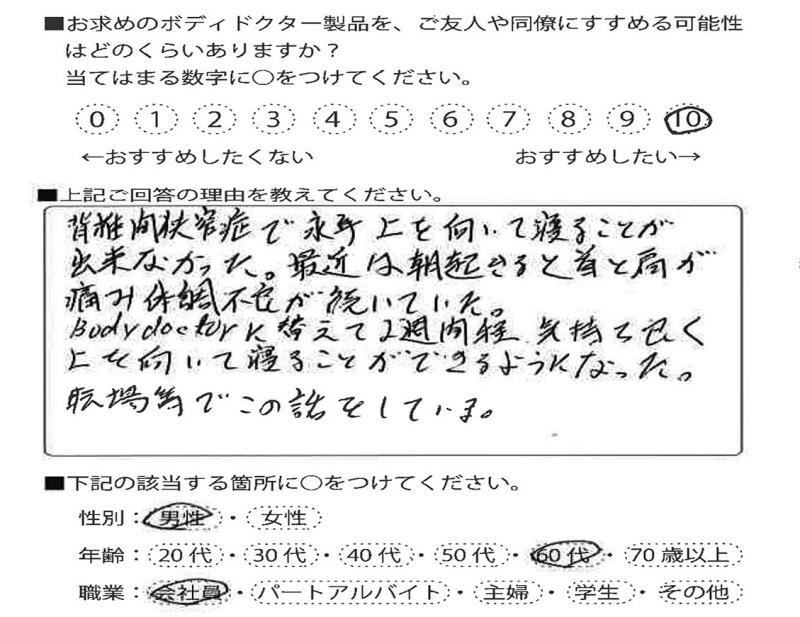 ■お求めのボディドクター製品を、ご友人や同僚にすすめる可能性
はどのくらいありますか？
当てはまる数字に○をつけてください。
0 1 2 3 4 5 6 7 8 9 10
←おすすめしたくない おすすめしたい→
■上記ご回答の理由を教えてください。
背椎間狭窄症で永年上を向いて寝ることが
出来なかった。最近は朝起きると首と肩が
痛み体調不良が続いていた。
Bodydoctorに替えて2週間程 気持ち良く
上を向いて寝ることができるようになった。
職場等でこの話をしている。
■下記の該当する箇所に○をつけてください。
性別：男性・女性
年齢：20代・30代・40代・50代・60代・70歳以上
職業：会社員・パートアルバイト・主婦・学生・その他